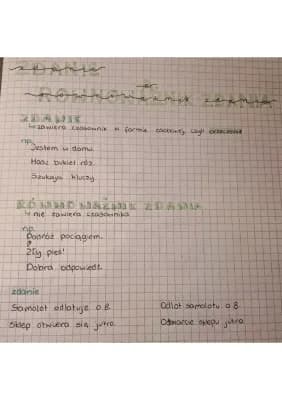 ZDANIE
a
RÓWNOWAŻNIK ZDANIA
ZDANIE
↳ zawiera czasownik w formie osobowej, czyli orzeczenie
np.
Jestem w domu.
Masz bukiet róż.
Szukają kluczy.
RÓWNOWAŻNIK ZDANIA
↳ nie zawiera czasownika
np.
Podróż pociągiem.
Zły pies!
Dobra odpowiedź.
zdanie
Samolot odlatuje o 8. Odlot samolotu o 8.
Sklep otwiera się jutro. Otwarcie sklepu jutro.